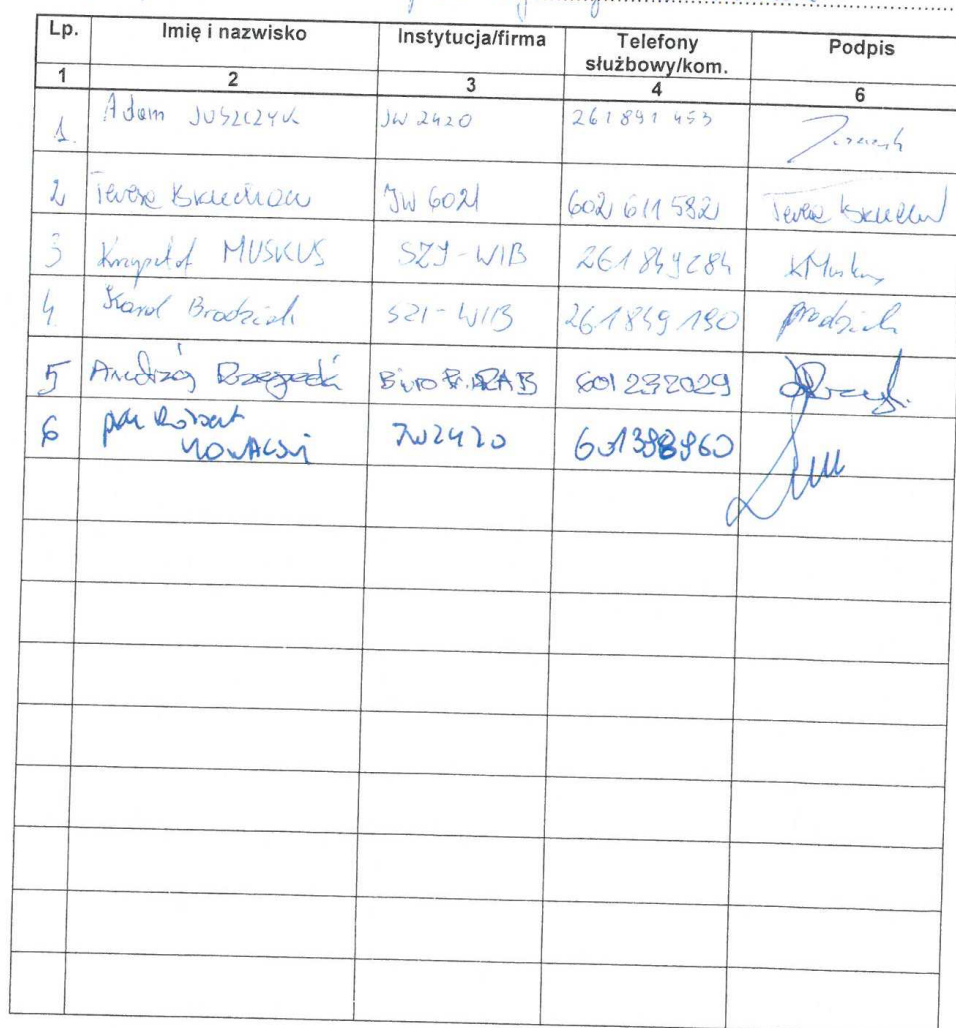 Lp. Imię i nazwisko Instytucja/firma Telefony służbowy/kom. Podpis
1 2 3 4 6
1. Adam JUSZCZYK JW 2420 261 891 453
2 Teresa JW 6021 602 611 582 Teresa
3 Krzysztof MUSKUS SZY-WIB 261849284 KMuskus
4. Karol Brodziak SZI-WIB 261849190 Brodziak
5 Andrzej Biuro 601232029
6 Robert NOWACKI JW2420 601398960